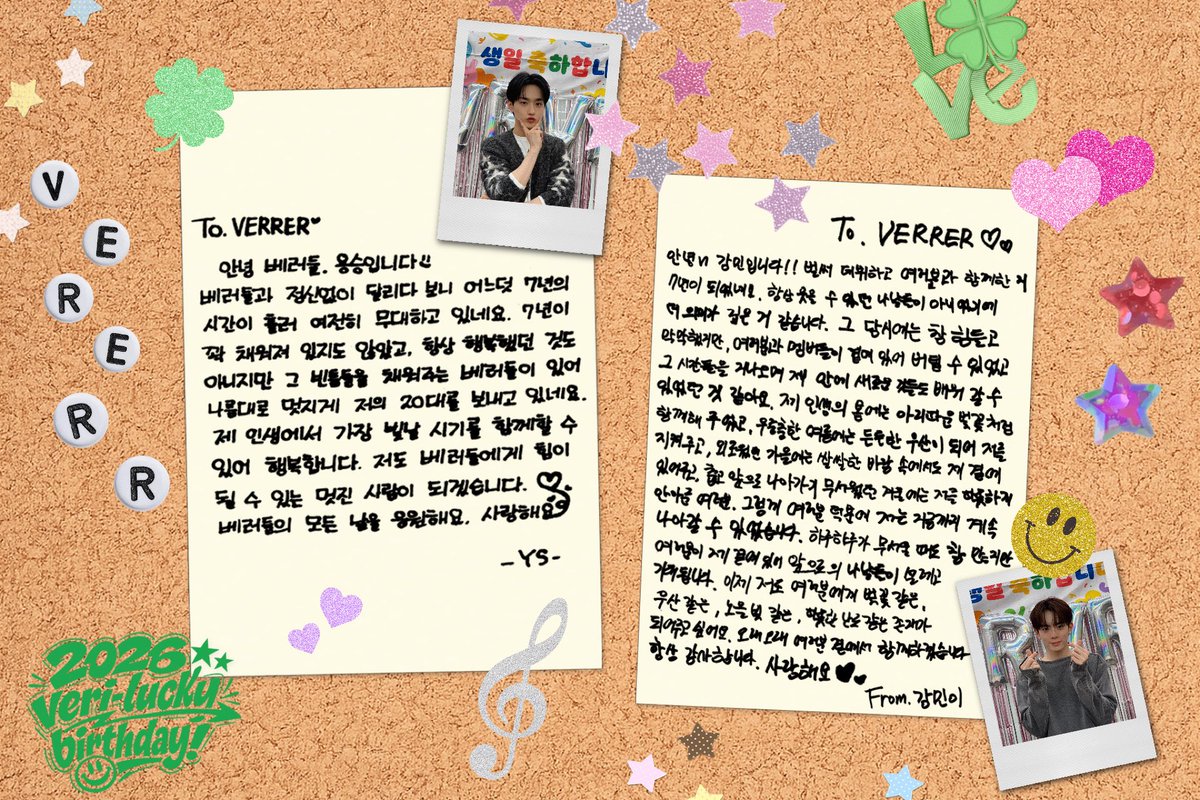 LOVE
생일 축하합니
VERRER
To. VERRER
안녕 베러들. 용승입니다
베러들과 정신없이 달리다 보니 어느덧 7년의
시간이 흘러 여전히 무대하고 있네요. 7년이
꽉 채워져 있지도 않았고, 항상 행복했던 것도
아니지만 그 빈틈들을 채워주는 베러들이 있어
나름대로 멋지게 저의 20대를 보내고 있네요.
제 인생에서 가장 빛날 시기를 함께할 수
있어 행복합니다. 저도 베러들에게 힘이
될 수 있는 멋진 사람이 되겠습니다.
베러들의 모든 날을 응원해요. 사랑해요
-YS-
To. VERRER
안녕 강민입니다!! 벌써 데뷔하고 여러분과 함께한 지
7년이 되었네요. 항상 웃을 수 있던 나날들이 아니었기에
더 의미가 깊은 거 같습니다. 그 당시에는 참 힘들고
막막했지만, 여러분과 멤버들이 곁에 있어 버틸 수 있었고
그 시간들을 지나오며 제 안에 새로운 것들도 배워 갈 수
있었던 것 같아요. 제 인생의 봄에는 아리따운 벚꽃처럼
함께해 주었고, 우중충한 여름에는 든든한 우산이 되어 저를
지켜주고, 외로웠던 가을에는 쌀쌀한 바람 속에서도 제 곁에
있어주고, 춥고 앞으로 나아가기 무서웠던 겨울에는 저를 따뜻하게
안아준 여러분. 그렇게 여러분 덕분에 저는 지금까지 계속
나아갈 수 있었습니다. 하루하루가 무서울 때도 참 많지만
여러분이 제 곁에 있어 앞으로의 나날들이 설레고
기대됩니다. 이제 저도 여러분에게 벚꽃 같은,
우산 같은, 노을 빛 같은, 따뜻한 난로 같은 존재가
되어주고 싶어요. 오래오래 여러분 곁에서 함께하겠습니다
항상 감사합니다. 사랑해요
From. 강민이
생일 축하합니다
2026
veri-lucky
birthday!